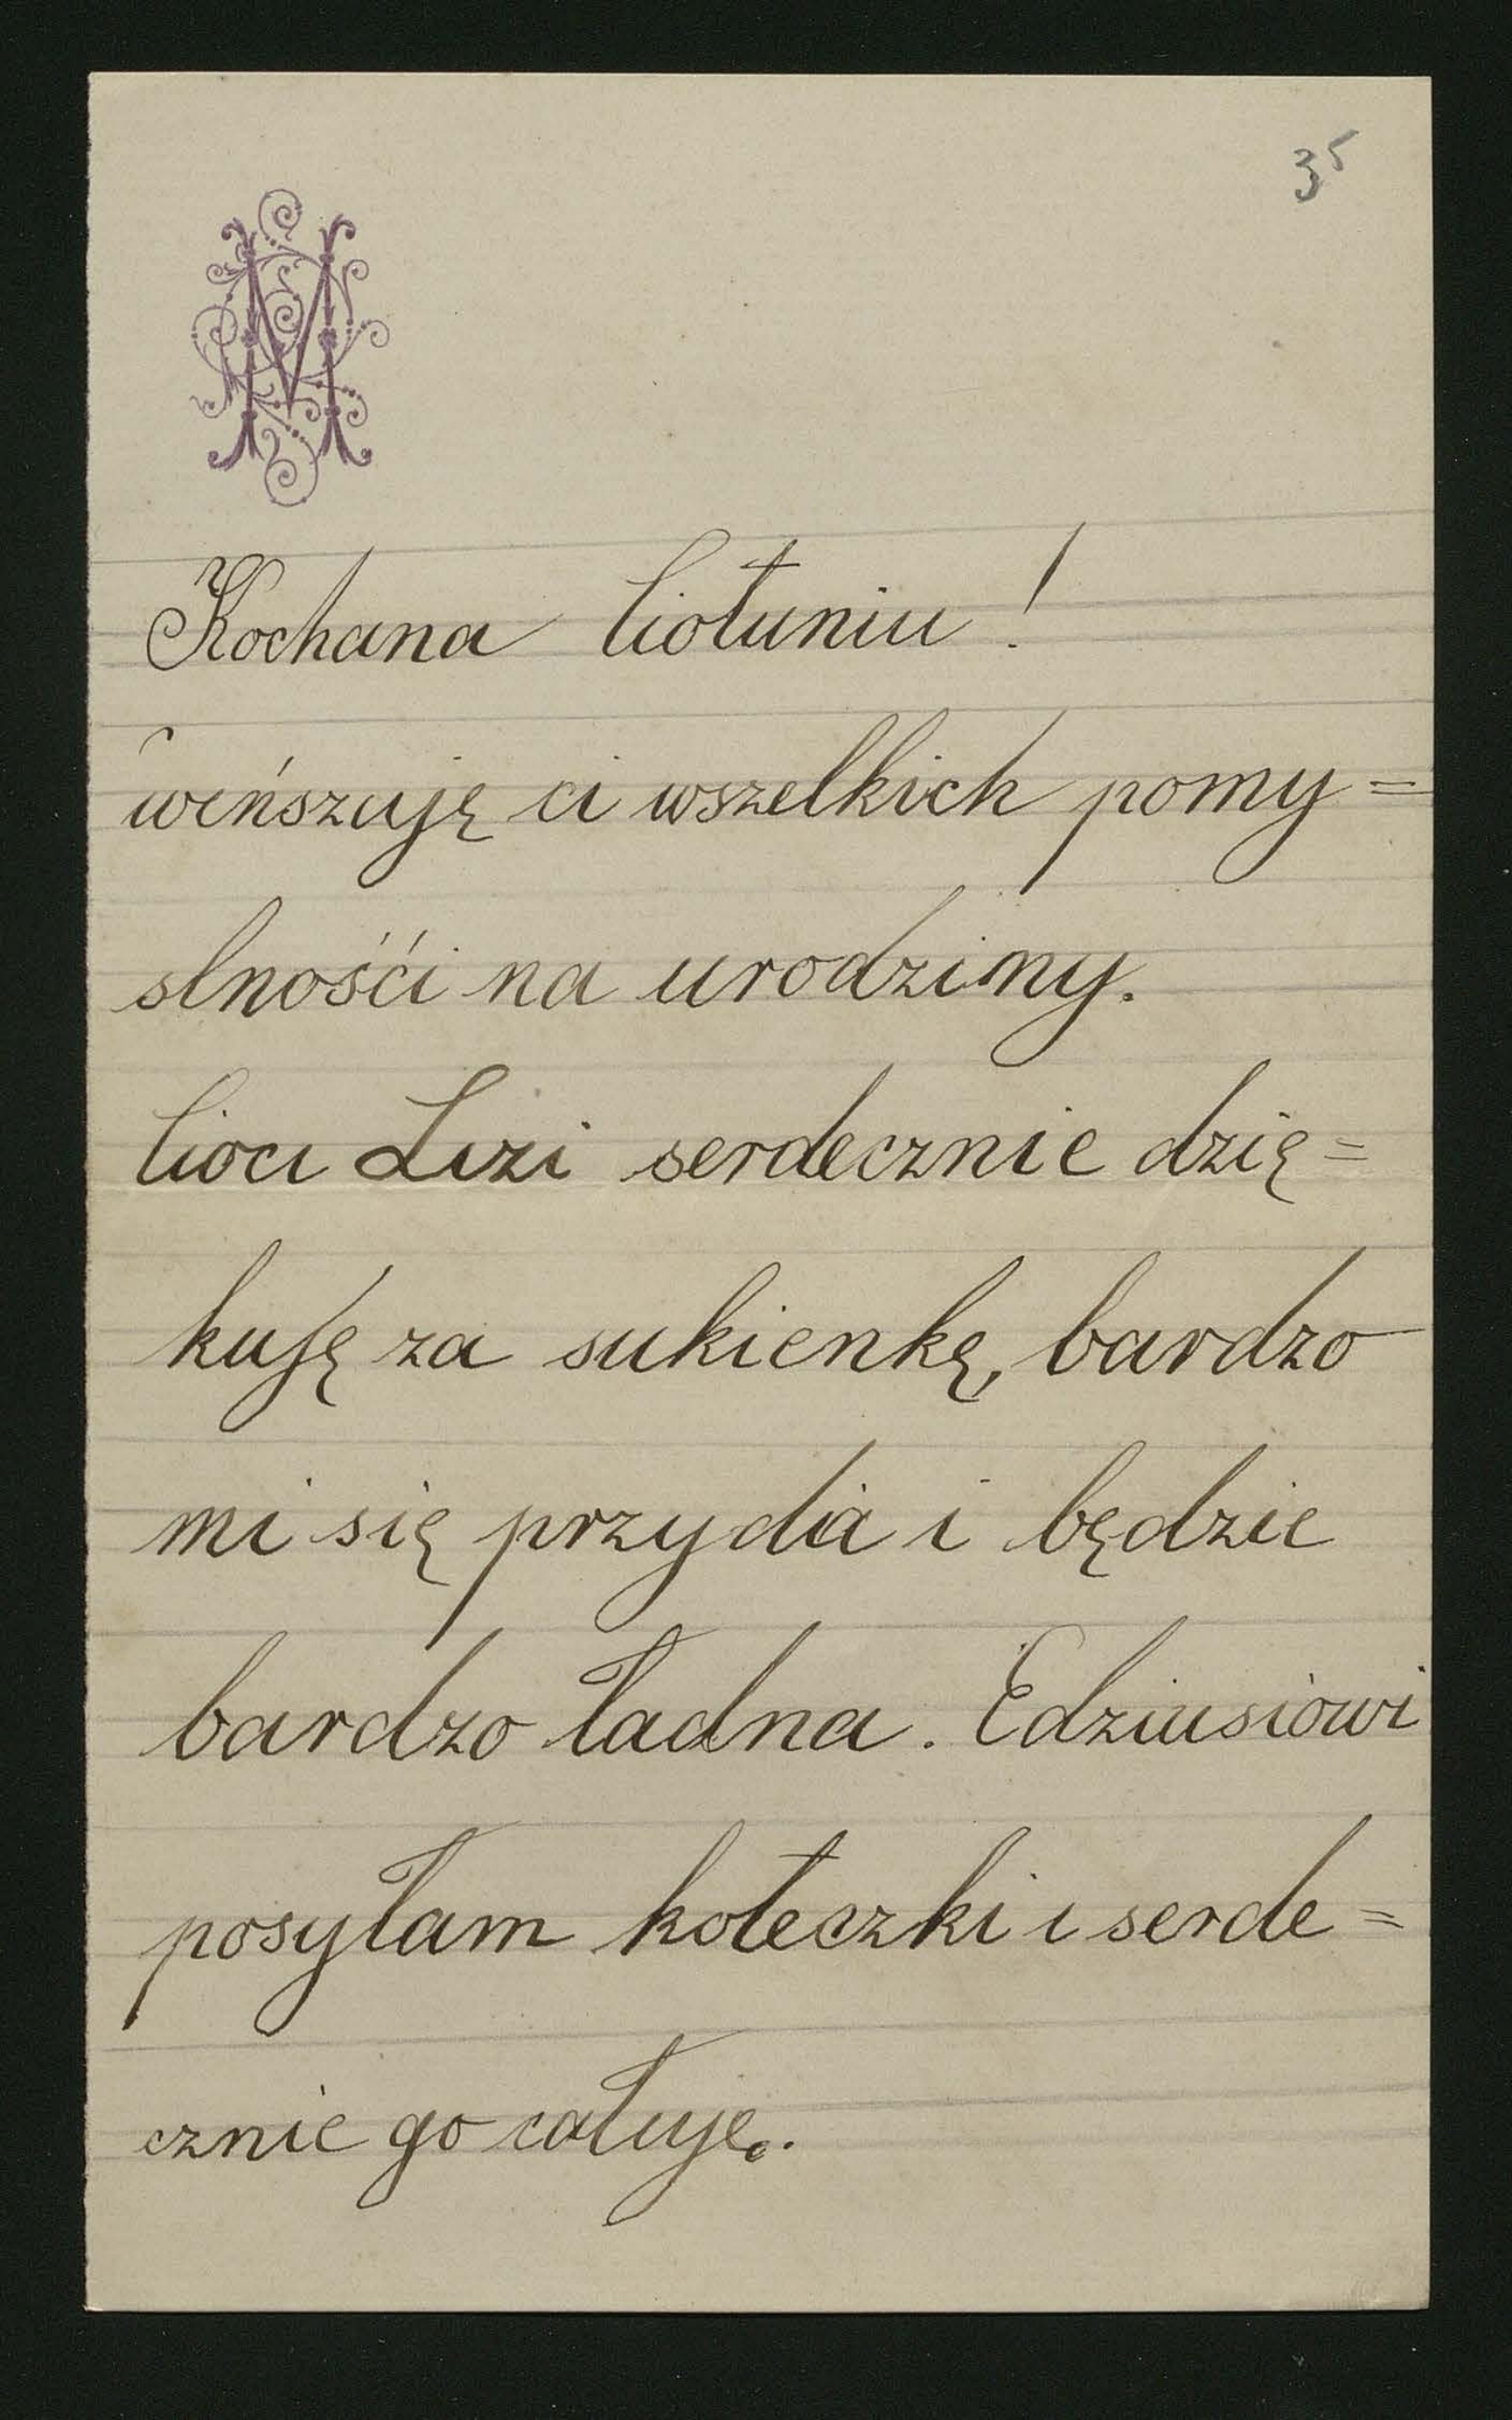 35
M
Kochana Ciotuniu!
winszuję ci wszelkich pomy=
slnośći na urodziny.
Cioci Lizi serdecznie dzię=
kuję za sukienkę, bardzo
mi się przyda i będzie
bardzo ładna. Edziusiowi
posyłam koteczki i serde=
cznie go całuję.